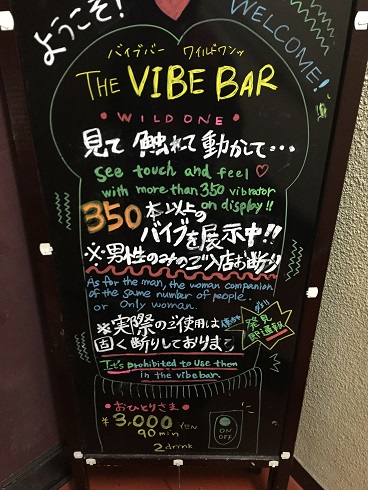 ようこそ!
WELCOME!
バイブバー ワイルドワンッ
THE VIBE BAR
• WILD ONE •
見て 触れて 動かして…
See touch and feel ♡
with more than 350 vibrator
on display!!
350本以上の
バイブを展示中!!
※男性のみのご入店お断り
As for the man, the woman companion
of the same number of people.
or Only woman.
※実際のご使用は
固く断りしております
発見
即通報
It's prohibited to use them
in the vibe bar.
• おひとりさま •
¥3,000 YEN
90min
2 drink
ON
OFF